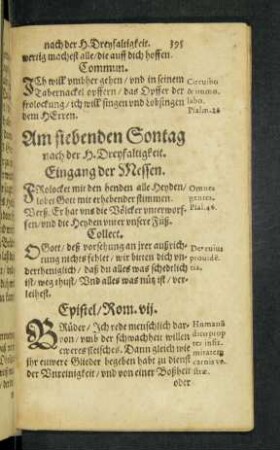 nach der H. Dreyfaltigkeit. 395
wertig machest alle/die auff dich hoffen.
Commun.
ICh will vmbher gehen/vnd in seinem
Tabernackel opffern/das Opffer der
frolockung/ich will singen vnd lobsingen
dem HErren.
Circuibo
& immo-
labo.
Psal. 26
Am siebenden Sontag
nach der H. Dreyfaltigkeit.
Eingang der Messen.
FRolocket mit den henden alle Heyden/
lobet Gott mit erhebender stimmen.
Verß. Er hat vns die Völcker vnterworf-
fen/vnd die Heyden vnter vnsere Füß.
Omnes
gentes.
Psal. 46.
Collect.
O Gott/deß vorsehung an jrer außrich-
tung nichts fehlet/wir bitten dich vn-
derthenigklich/daß du alles was schedlich
ist/weg thust/Vnd alles was nütz ist/ver-
leihest.
Deus cuius
prouidē-
tia.
Epistel/Rom. vij.
BRüder/Ich rede menschlich dar-
von/vmb der schwachheit willen
eweres fleisches. Dann gleich wie
jhr euwere Glieder begeben habt zu dienst
der Vnreinigkeit/vnd von einer Boßheit
Humanū
dico prop-
ter infir-
mitatem
carnis ve-
stræ.
oder